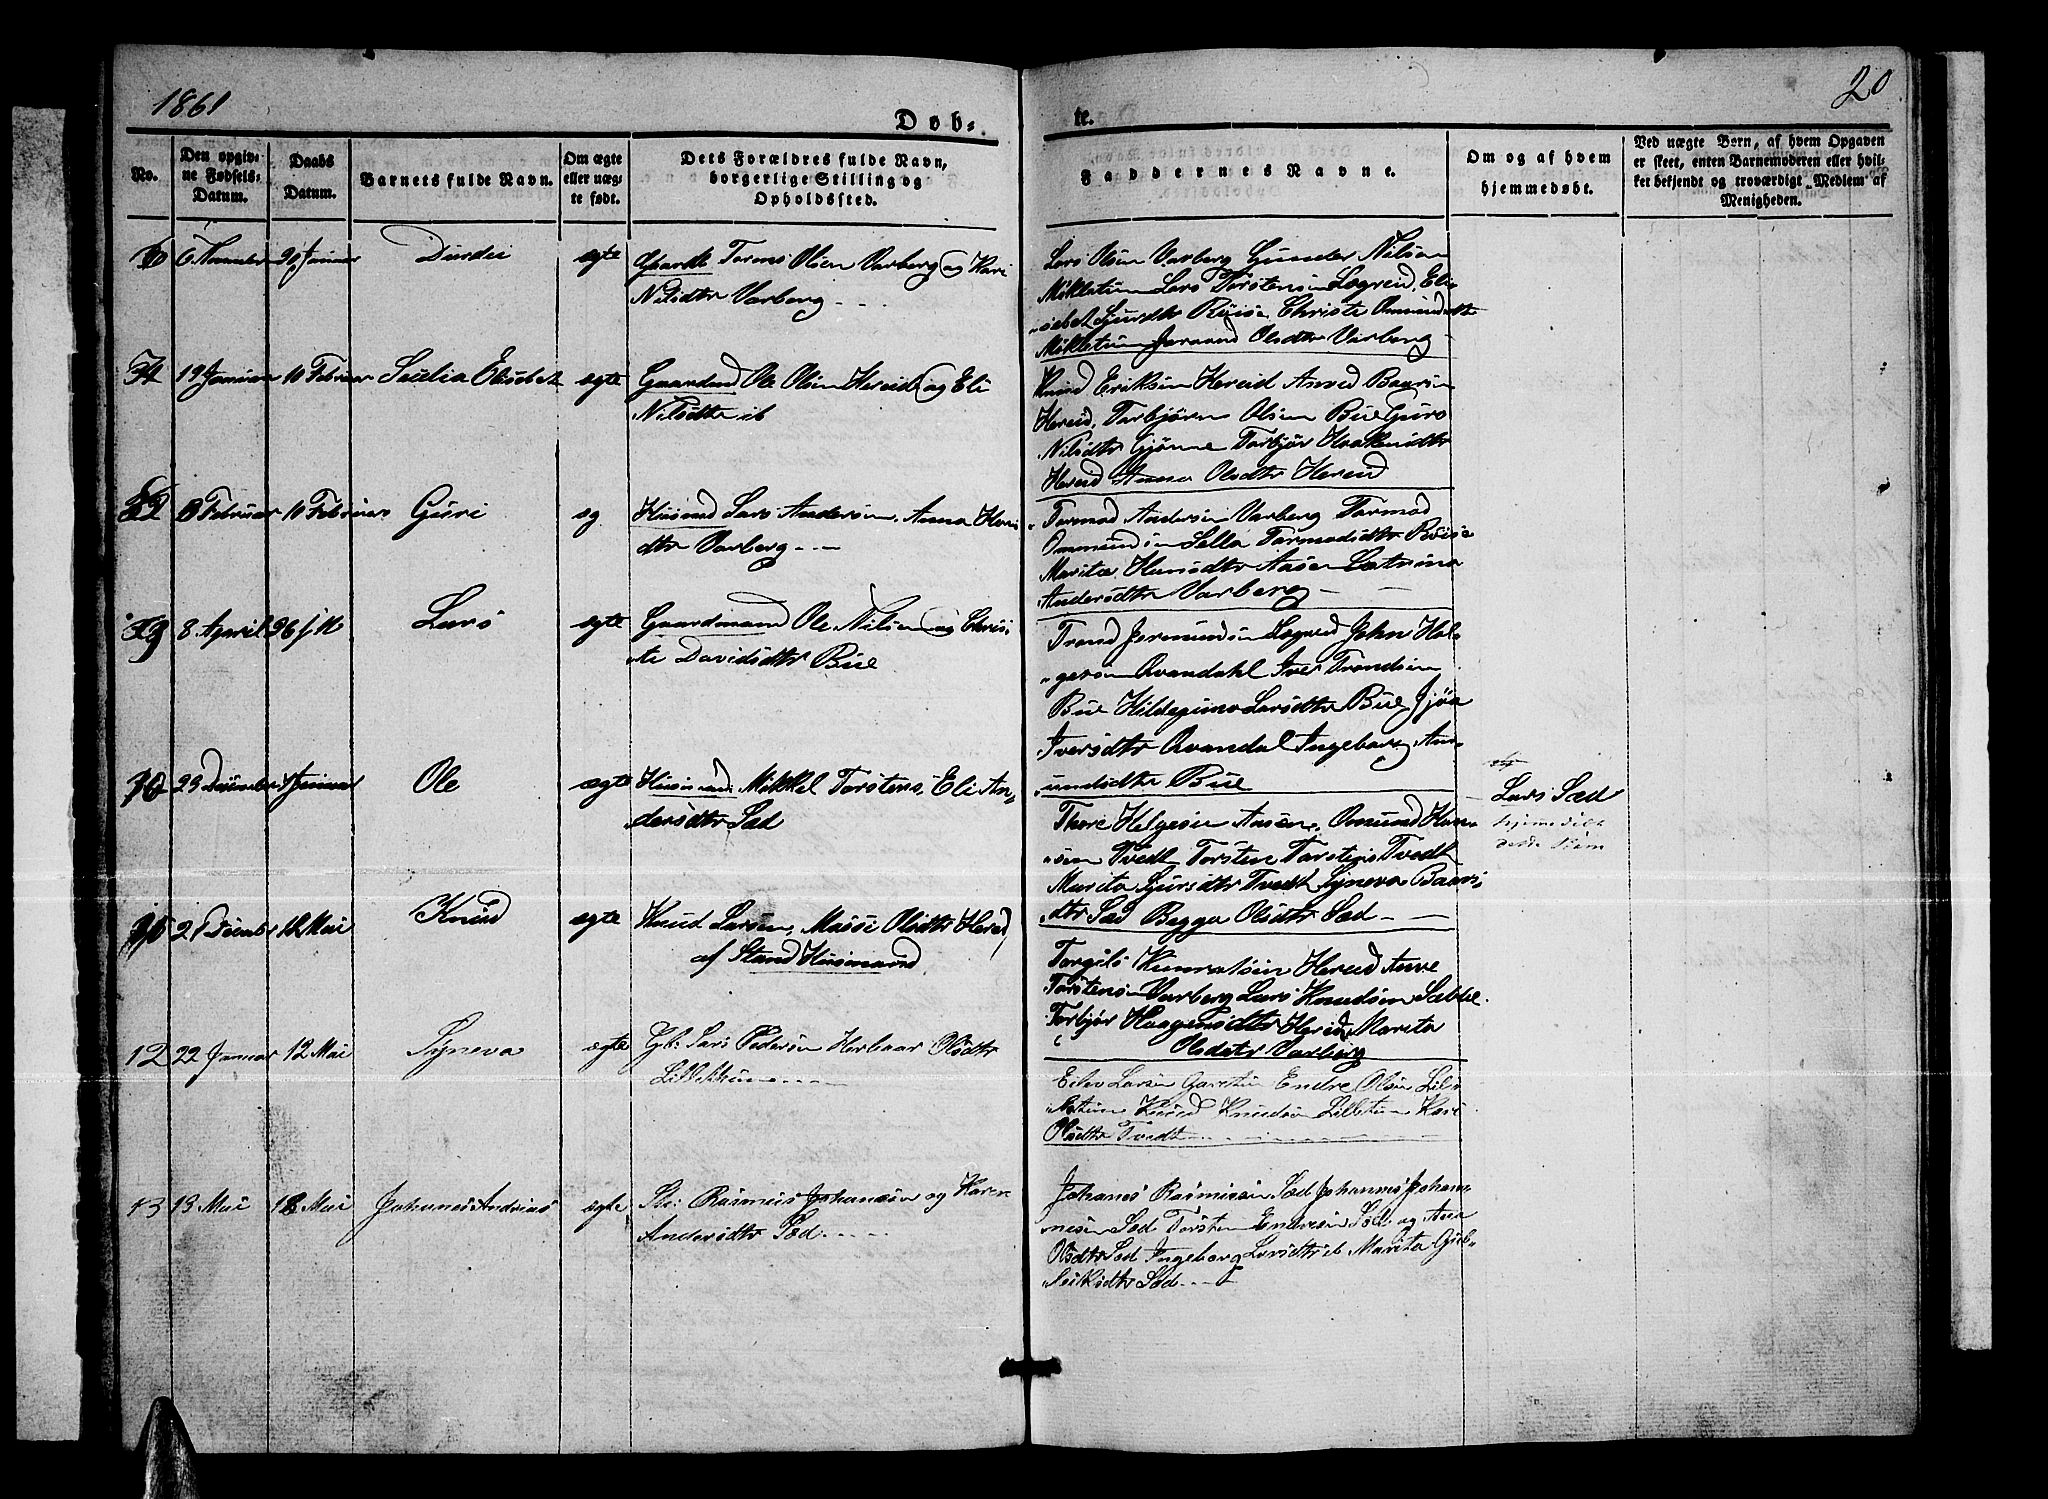 1861
Døb-
te.
20
No.
Den opgiv-
ne Fødsels-
Datum.
Daabs
Datum.
Barnets fulde Navn.
Om ægte
eller uæg-
te født.
Dets Forældres fulde Navn,
borgerlige Stilling og
Opholdssted.
Faddernes Navne.
Om og af hvem
hjemmedøbt.
Ved uægte Børn, af hvem Opgaven
er skeet, enten Barnemoderen eller hvil-
ket bekjendt og troværdigt Medlem af
Menigheden.
20 Januar Durdei ægte Gaardb Tormo Olsen Varberg og Kari
Nilsdtr Varberg
Lars Olsen Varberg Gunder Nilsen
Mikletun Lars Torstensen Lægreid, Eli-
sebet Sjurdtr Röise Christe Omundsdtr
Mikletun Joraand Olsdtr Varberg
19 Januar 10 Februar Seulia Elisebet ægte Gaardmd Ole Olsen Hereid og Eli
Nilsdtr ib
Knud Eriksen Hereid Anved Baarsen
Hereid, Torbjörn Olsen Bue Guro
Nilsdtr Gjönne Torbjör Haakensdtr
Hereid Anna Olsdtr Hereid
Februar 10 Februar Guri æg Husmd Lars Andersen, Anna
dtr Varberg
Tormod Andersen Varberg Tormod
Ommundsen Sella Tormodsdtr Röise
Marita Hansdtr Aasen Catrina
Andersdtr Varberg
8 April 26 Lars ægte Gaardmand Ole Nilsen og Chris-
te Davidsdtr Bue
Trond Jermundsen Lægreid John Hel-
gesen Qvandahl Iver Trondsen
Bue Hildeguno Larsdtr Bue Gjöa
Iversdtr Qvandal Ingeborg Am-
undsdtr Bue
23 December Januar Ole ægte Husmand Mikkel Torstens, Eli An-
dersdtr Sæd
Thore Helgesen Aasen, Omund Han-
sen Tvedt Torsten Torstens Tvedt
Marita Sjursdtr Tvedt Syneva Baars-
dtr Sæd Begga Olsdtr Sæd
Lars Sæd
hjemedöbt
21 December 12 Mai Knud ægte Knud Larsen, Massi Olsdtr Hereid
af Stand Husmand
Torgils Hereid Anve
Torstensen Varberg Lars Knudsen Sæbbe
Torbjör Haagensdtr Hereid, Marita
Olsdatr Varberg
12 22 Januar 12 Mai Syneva ægte Gb: Lars Pedersen Herbaar Olsdtr
Lilletun
Eilev Larsen Garetun Endre Olsen Lil-
letun Knud Knudsen Lilletun Kari
Olsdtr Tvedt
13 13 Mai 18 Mai Johanes Andreas ægte Str: Rasmus Johanesen og Karen
Andersdtr Sæd
Johanes Rasmusen Sæd Johannes Johan-
nesen Sæd Torsten Endresen Sæd og Ana
Olsdtr Sæd Ingeborg Larsdtr ib Marita Gub-
leiksdtr Sæd